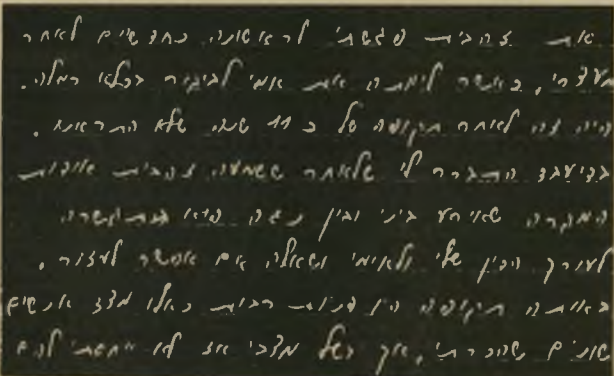 את זהבית פגשתי לראשונה כחדשיים לאחר
מעצרי, כאשר ליוותה את אמי לביקור בכלא רמלה.
היה זה לאחר תקופה של כ 11 שנה שלא התראינו.
בדיעבד התברר לי שלאחר ששמעה זהבית אודות
המקרה שאירע ביני ובין נגה היא התקשרה
לעורך הדין שלי ולאימי ושאלה אם אפשר לעזור.
באותה תקופה היו פניות רבות כאלו מצד אנשים
שונים שהכרתי, אך בשל מצבי אז לא יחסתי להם